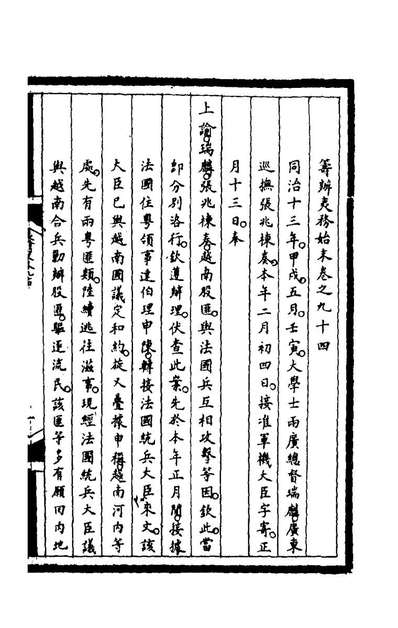 籌辦夷務始末卷之九十四
同治十三年。甲戌。五月。壬寅。大學士兩廣總督瑞麟。廣東
巡撫張兆棟奏。本年二月初四日。接准軍機大臣字寄。正
月十三日。奉
上諭。瑞麟。張兆棟奏。越南股匪。與法國兵互相攻擊等因。欽此。當
即分別咨行。欽遵辦理。伏查此案。先於本年正月間。接據
法國住粵領事達伯理申陳。轉接法國統兵大臣來文。該
大臣已與越南國議定和約。旋又疊據申稱。越南河內等
處。先有兩粵匪類。陸續逃往滋事。現經法國統兵大臣議
與越南合兵勦辦股匪。驅逐流民。該匪等多有願回內地